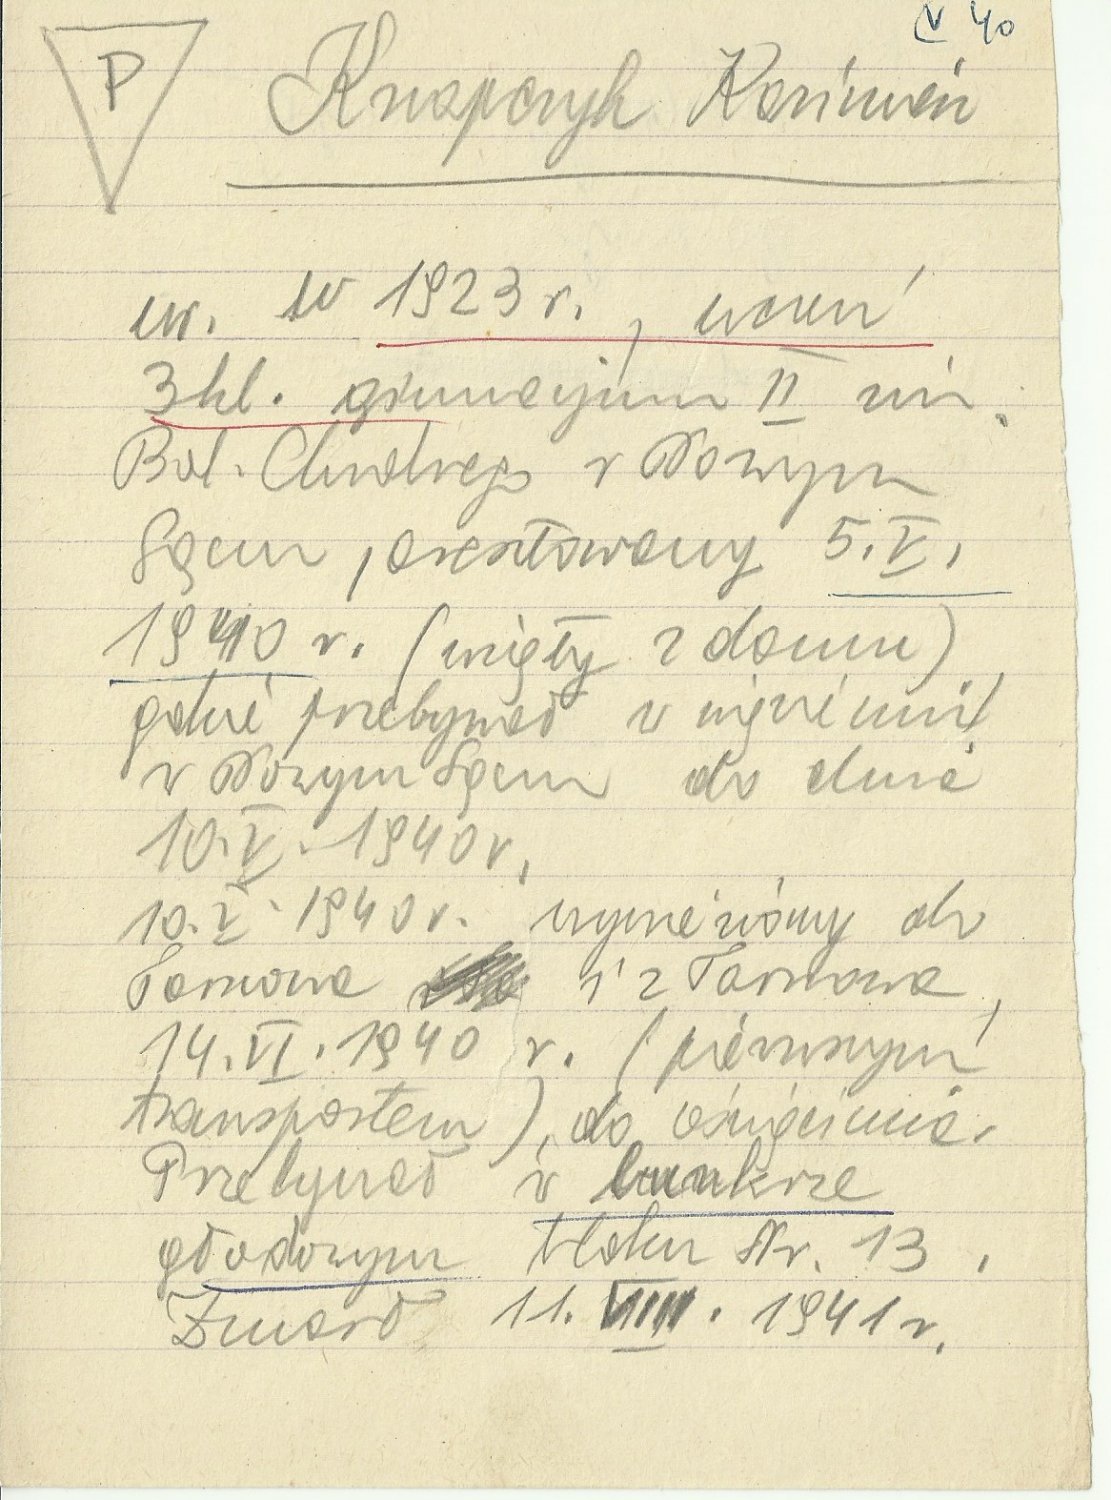 V 40
P
Knapczyk Kazimierz
ur. w 1923 r., uczeń
3 kl. gimnazjum II im.
Bol. Chrobrego w Nowym
Sączu, aresztowany 5.V.
1940 r. (wzięty z domu)
gdzie przebywał w więzieniu
w Nowym Sączu do dnia
10.V. 1940 r.
10.V. 1940 r. wywieziony do
Tarnowa i z Tarnowa,
14.VI.1940 r. (pierwszym
transportem), do Oświęcimia.
Przebywał w bunkrze
głodowym bloku Nr. 13.
Zmarł 11. VIII. 1941 r.